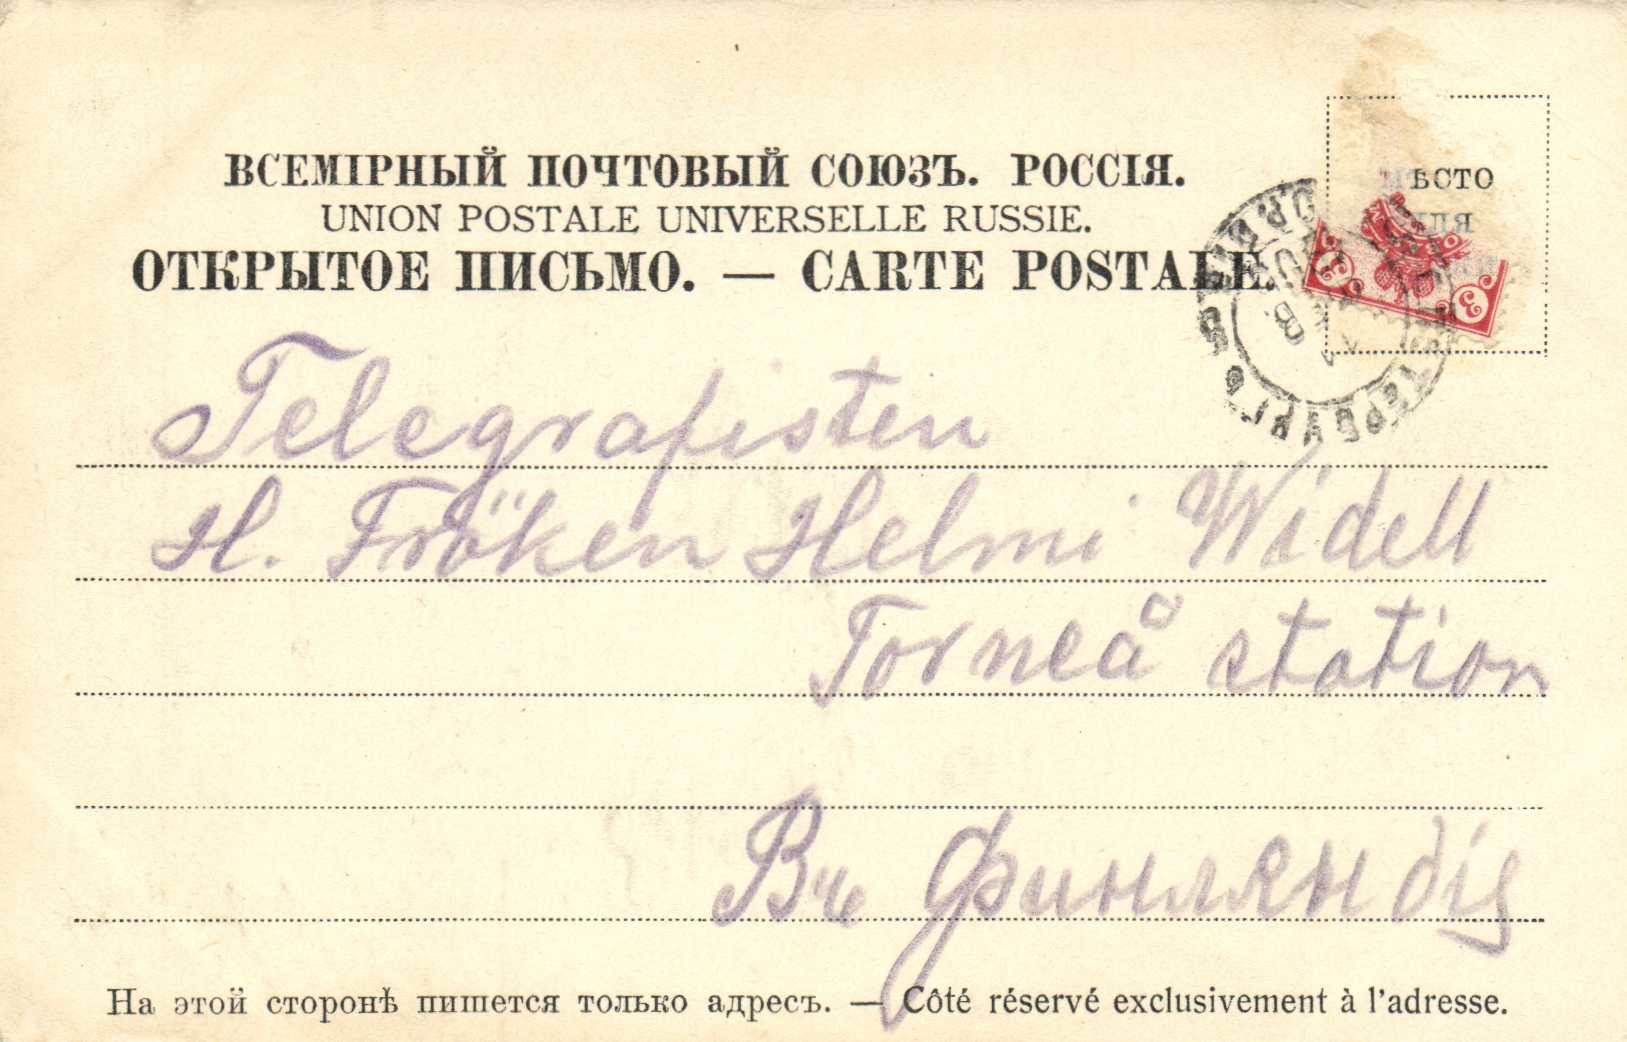 ВСЕМІРНЫЙ ПОЧТОВЫЙ СОЮЗЪ. РОССІЯ.
UNION POSTALE UNIVERSELLE RUSSIE.
ОТКРЫТОЕ ПИСЬМО. — CARTE POSTALE.
МѢСТО
ДЛЯ
3 3
Telegrafisten
H. Fröken Helmi Widell
Torneå station
Въ Финляндіѧ
На этой сторонѣ пишется только адресъ. — Côté réservé exclusivement à l'adresse.